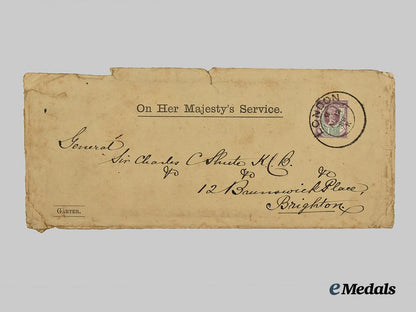 On Her Majesty's Service.
LONDON
General
Sir Charles C Shute K.C.B.
&c &c &c
12 Brunswick Place,
Brighton.
GARTER.
eMedals